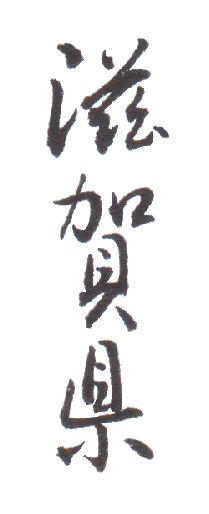 滋賀県